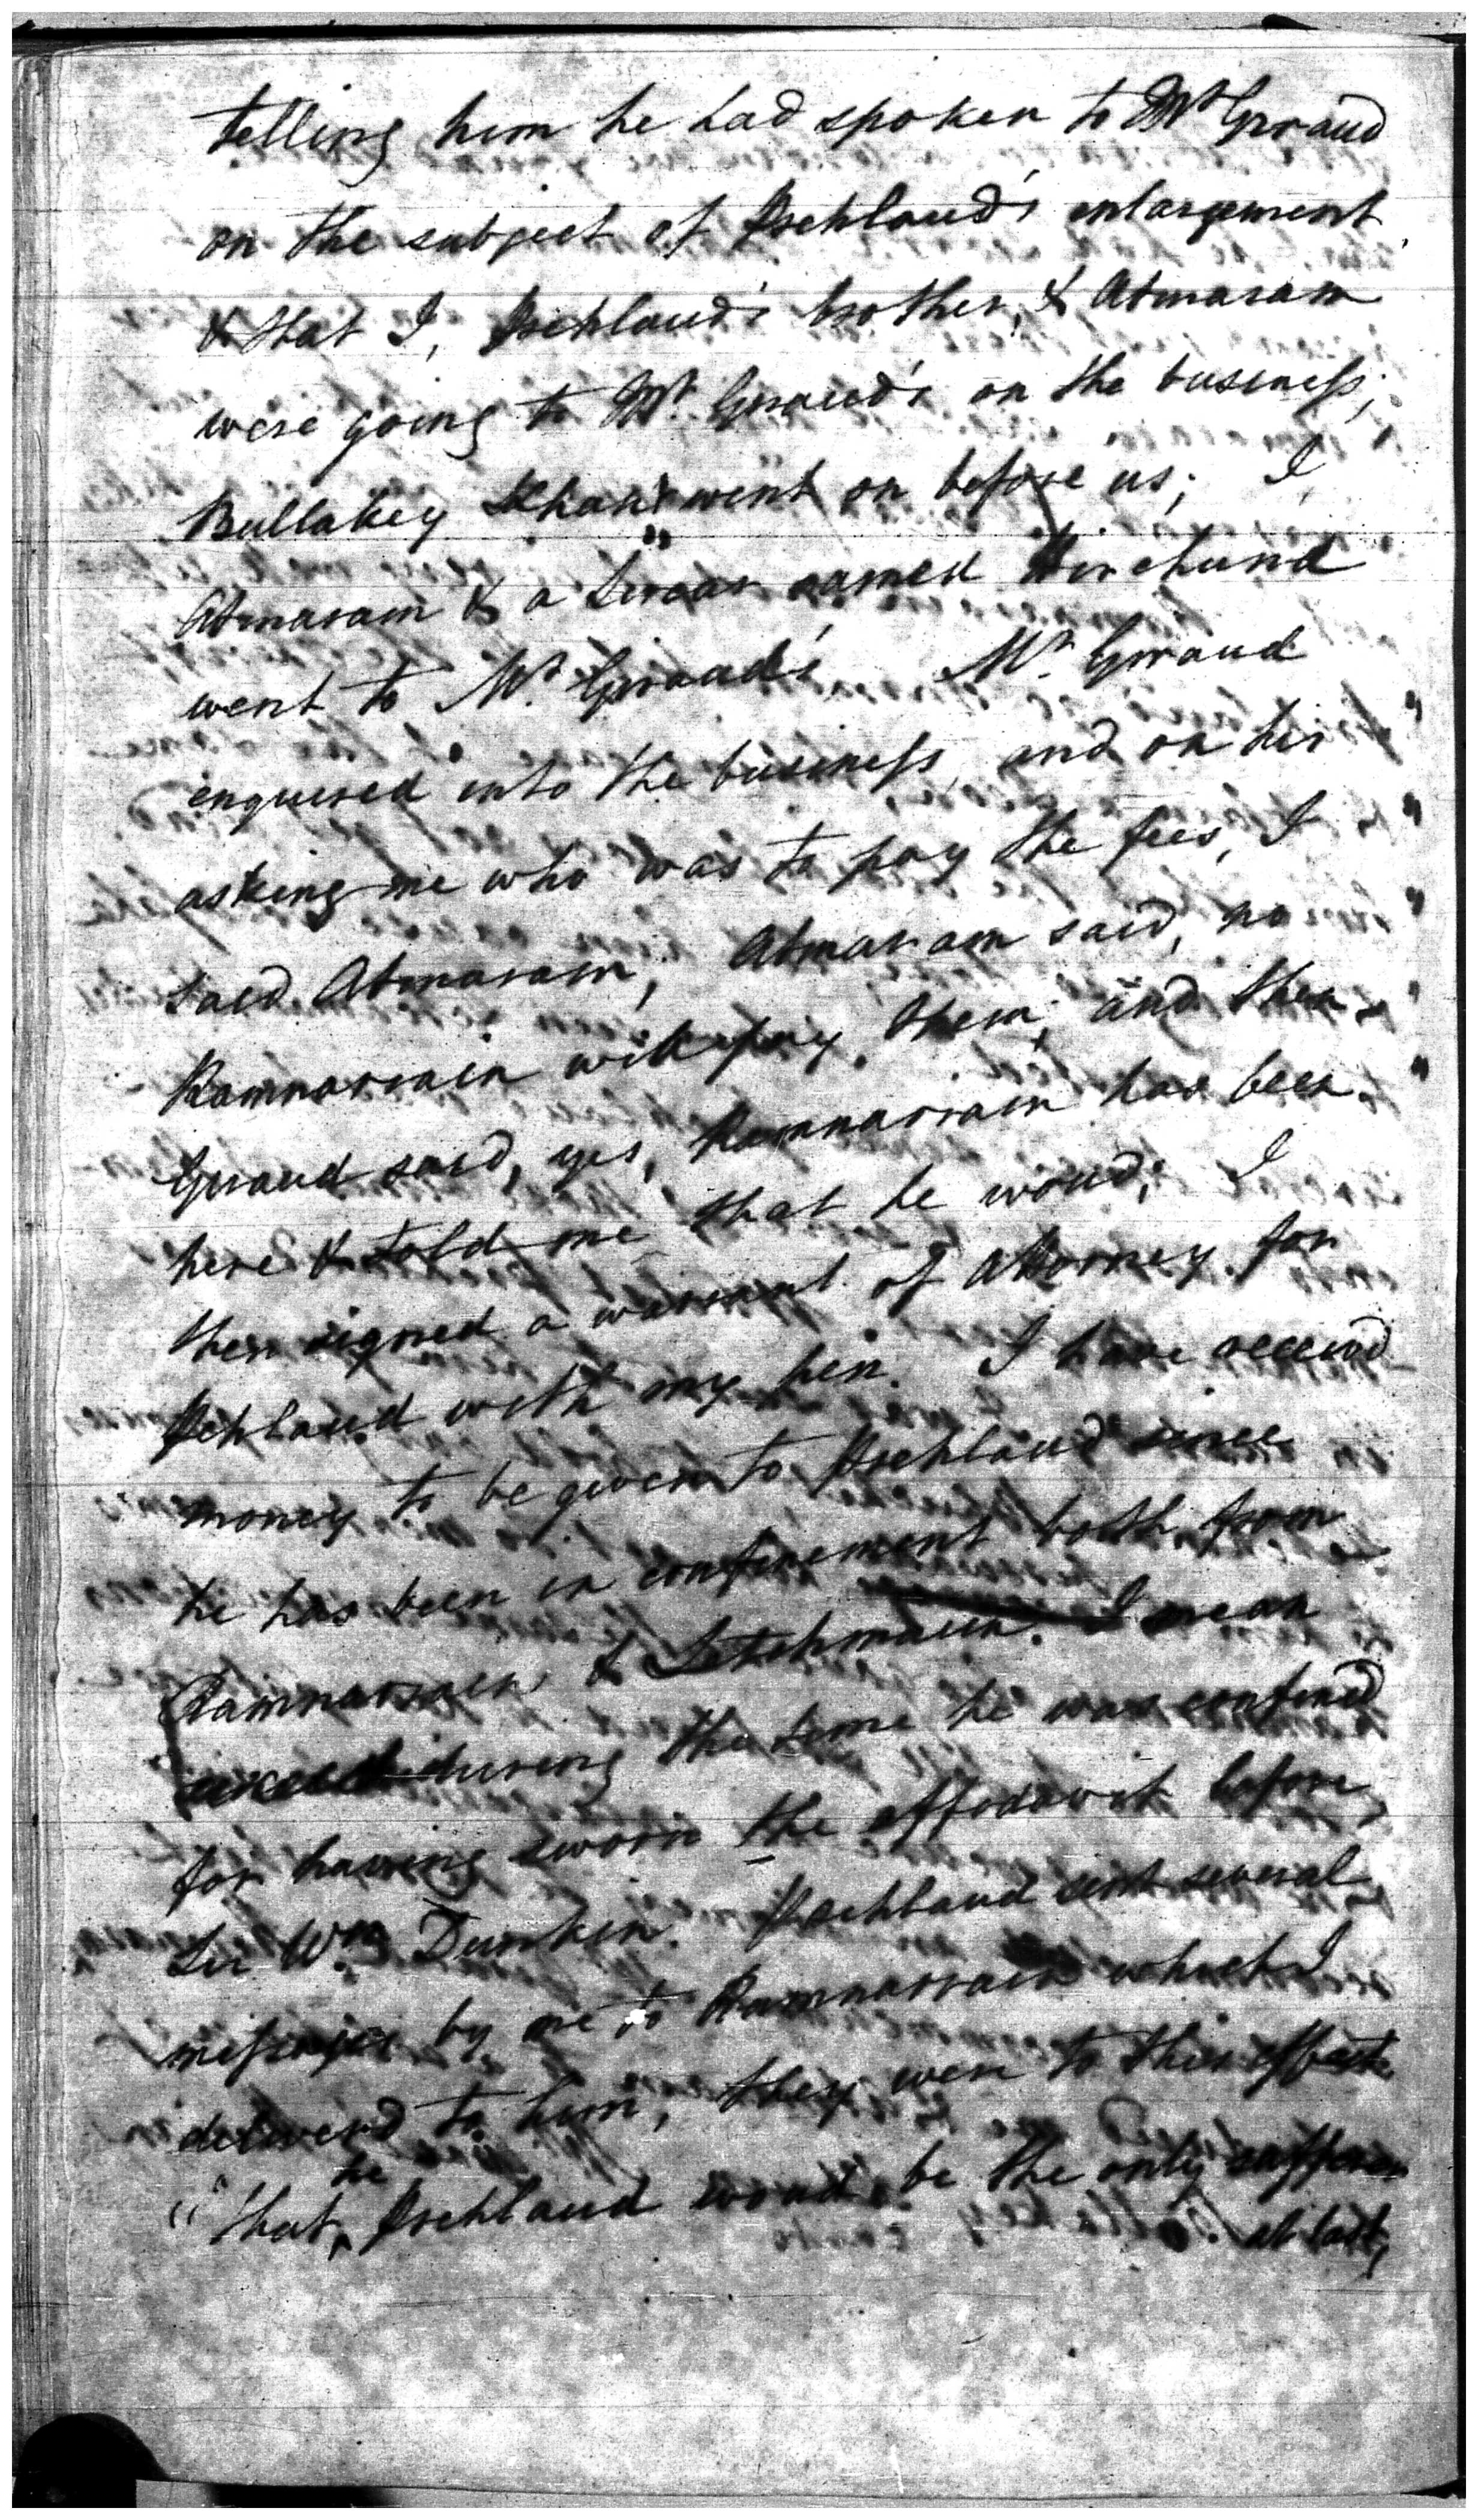 telling him he had spoken to Mr Giraud
on the subject of Pochlaud's enlargement
& that I, Pochlaud's brother, & Atmaram
were going to Mr Giraud's on the business;
Bullakey went on before us; I,
Atmaram & a Sircar named Hirchund
went to Mr. Giraud's Mr. Giraud
enquired into the business, and on his
asking me who was to pay the fees, I
said Atmaram; Atmaram said, no
Ramnarrain will pay them, and then
Giraud said, yes, Ramnarrain has been
here & told me that he woud; I
then signed a warrant of Attorney for
Pochlaud with my pen. I have receivd
money to be given to Pochlaud since
he has been in confinement both from
Ramnarrain & Letchmaun. I mean
during the time he was confined
for having sworn the affidavit before
Sir Wm Dunkin. Pochlaud sent several
messages by me to Ramnarrain which I
deliverd to him, they were to this effect
"that he Pochlaud woud be the only sufferer
at last,